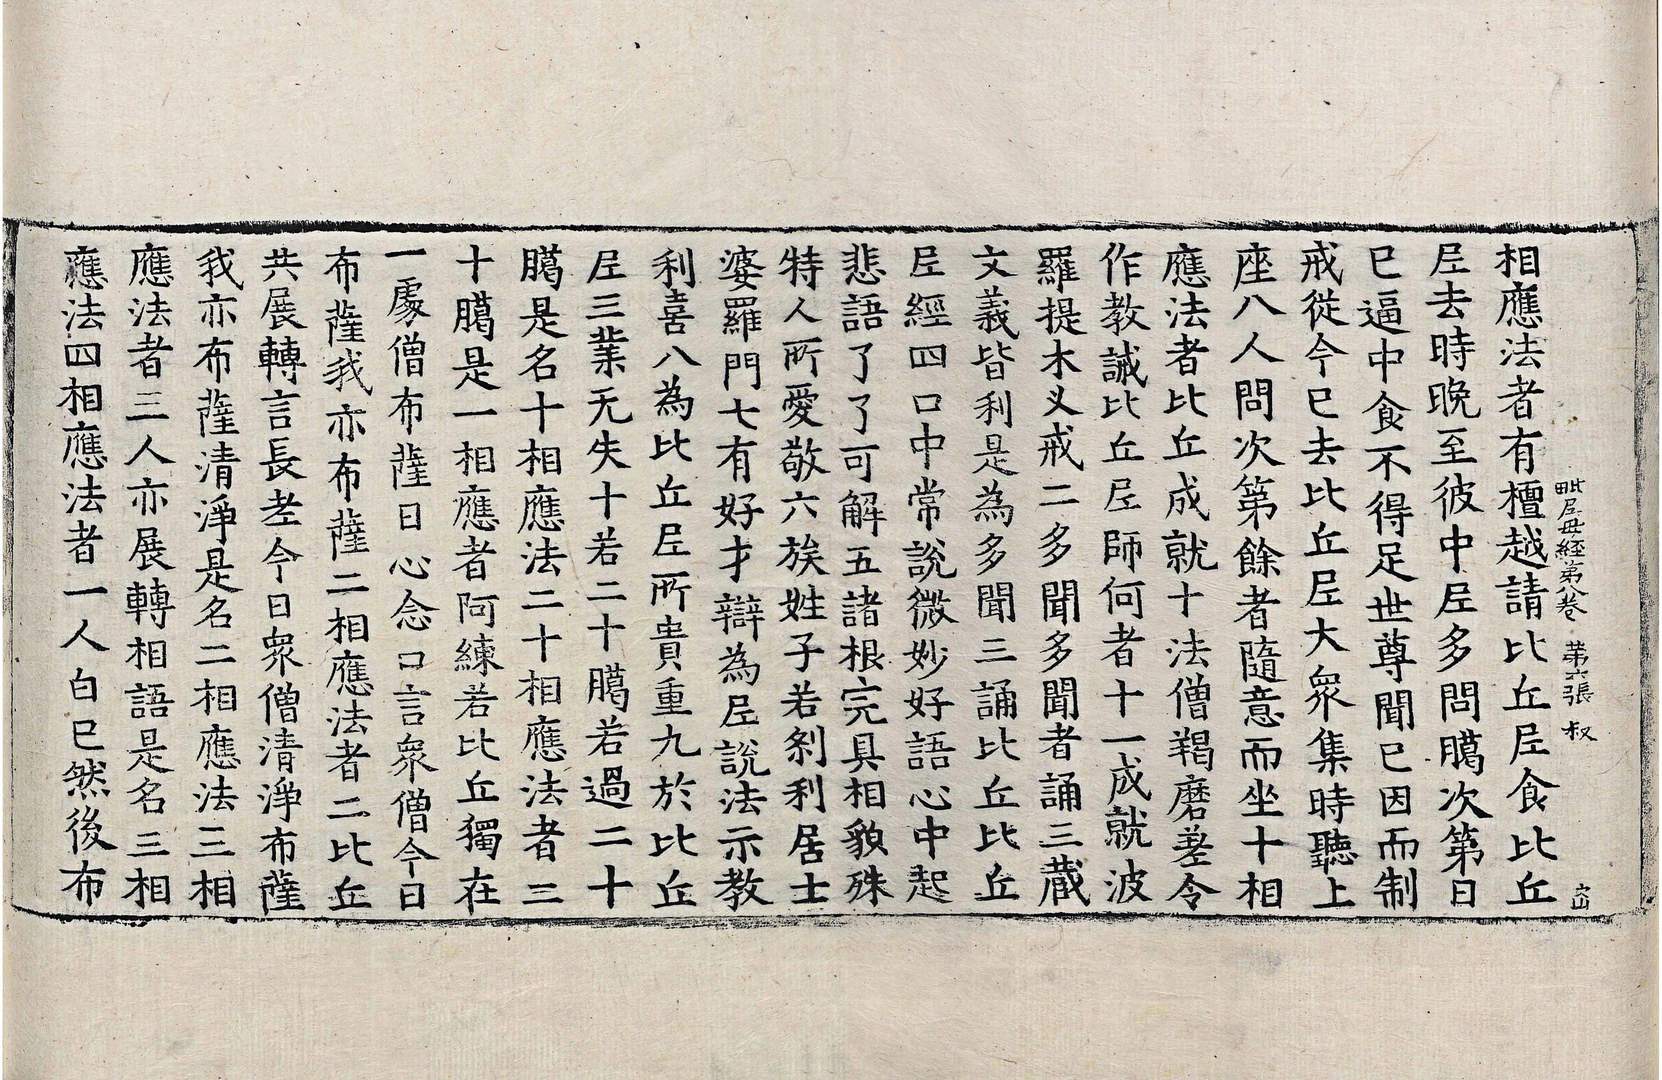 毗尼母經第八卷 第六張 叔
相應法者有檀越請比丘尼食比丘
尼去時晚至彼中尼多問臈次第日
已逼中食不得足世尊聞已因而制
戒從今已去比丘尼大衆集時聽上
座八人問次第餘者隨意而坐十相
應法者比丘成就十法僧羯磨差令
作教誡比丘尼師何者十一成就波
羅提木叉戒二多聞多聞者誦三藏
文義皆利是為多聞三誦比丘比丘
尼經四口中常說微妙好語心中起
悲語了了可解五諸根完具相貌殊
特人所愛敬六族姓子若剎利居士
婆羅門七有好才辯為尼說法示教
利喜八為比丘尼所貴重九於比丘
尼三業无失十若二十臈若過二十
臈是名十相應法二十相應法者三
十臈是一相應者阿練若比丘獨在
一處僧布薩日心念口言衆僧今日
布薩我亦布薩二相應法者二比丘
共展轉言長老今日衆僧清淨布薩
我亦布薩清淨是名二相應法三相
應法者三人亦展轉相語是名三相
應法四相應法者一人白已然後布